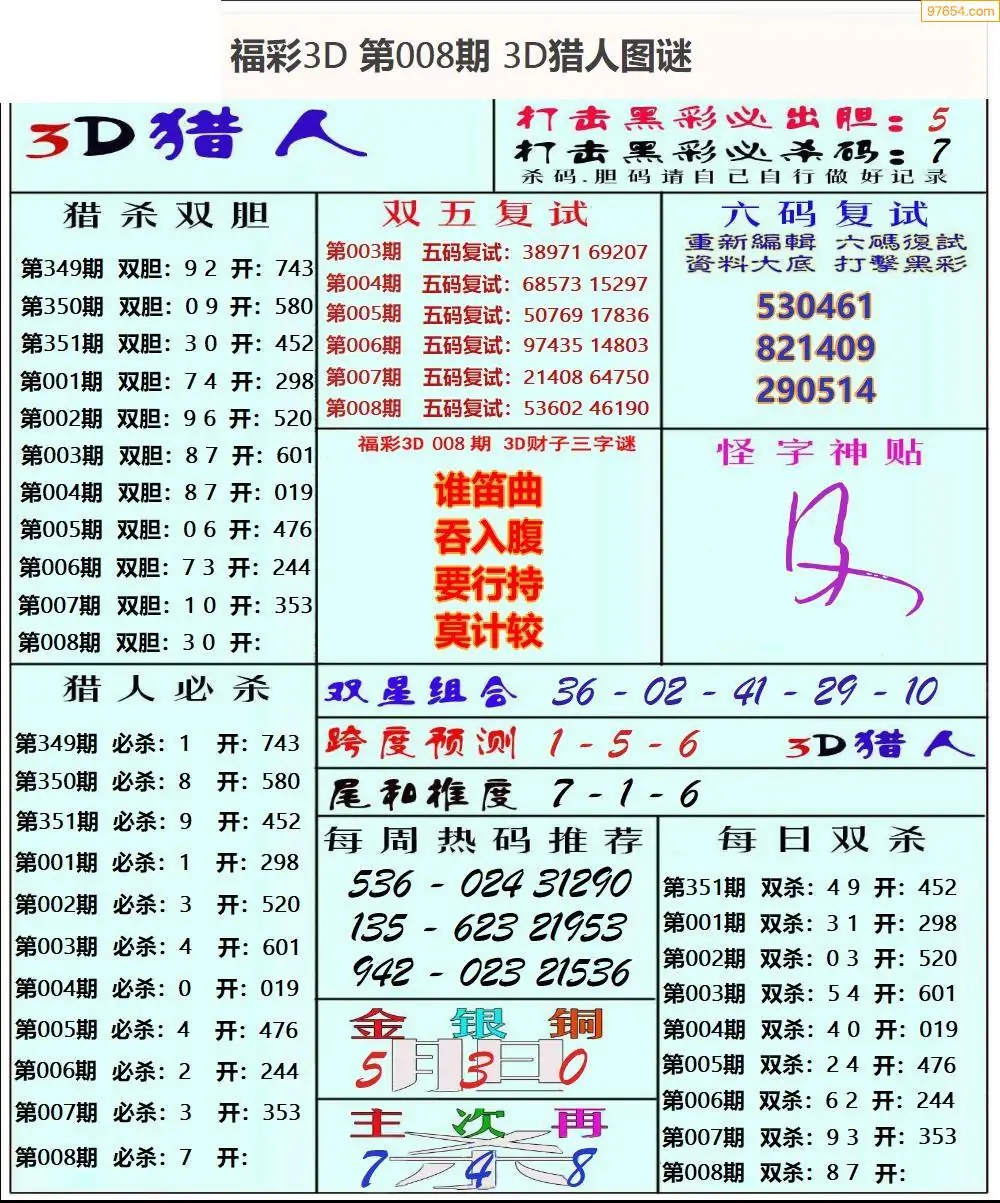 97654.com
福彩3D 第008期 3D猎人图谜
3D猎人
打击黑彩必出胆：5
打击黑彩必杀码：7
杀码.胆码请自己自行做好记录
猎杀双胆
第349期 双胆：9 2 开：743
第350期 双胆：0 9 开：580
第351期 双胆：3 0 开：452
第001期 双胆：7 4 开：298
第002期 双胆：9 6 开：520
第003期 双胆：8 7 开：601
第004期 双胆：8 7 开：019
第005期 双胆：0 6 开：476
第006期 双胆：7 3 开：244
第007期 双胆：1 0 开：353
第008期 双胆：3 0 开：
双五复试
第003期 五码复试：38971 69207
第004期 五码复试：68573 15297
第005期 五码复试：50769 17836
第006期 五码复试：97435 14803
第007期 五码复试：21408 64750
第008期 五码复试：53602 46190
六码复试
重新編輯 六碼復試
資料大底 打擊黑彩
530461
821409
290514
福彩3D 008 期 3D财子三字谜
谁笛曲
吞入腹
要行持
莫计较
怪字神贴
猎人必杀
第349期 必杀：1 开：743
第350期 必杀：8 开：580
第351期 必杀：9 开：452
第001期 必杀：1 开：298
第002期 必杀：3 开：520
第003期 必杀：4 开：601
第004期 必杀：0 开：019
第005期 必杀：4 开：476
第006期 必杀：2 开：244
第007期 必杀：3 开：353
第008期 必杀：7 开：
双星组合 36 - 02 - 41 - 29 - 10
跨度预测 1 - 5 - 6 3D猎人
尾和推度 7 - 1 - 6
每周热码推荐
536 - 024 31290
135 - 623 21953
942 - 023 21536
金 银 铜
月日
5 3 0
主 次 再
杀
7 4 8
每日双杀
第351期 双杀：4 9 开：452
第001期 双杀：3 1 开：298
第002期 双杀：0 3 开：520
第003期 双杀：5 4 开：601
第004期 双杀：4 0 开：019
第005期 双杀：2 4 开：476
第006期 双杀：6 2 开：244
第007期 双杀：9 3 开：353
第008期 双杀：8 7 开：